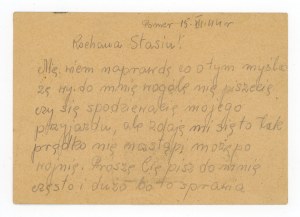 15.VIII.44r
Kochana Stasiu!
Nie wiem naprawdę co o tym myśleć
że Wy do mnie nagle nie piszecie
czy się spodziewacie mojego
przyjazdu, ale zdaje mi się to tak
prędko nie nastąpi może po
wojnie. Proszę Cię pisz do mnie
często i dużo bo to sprawia